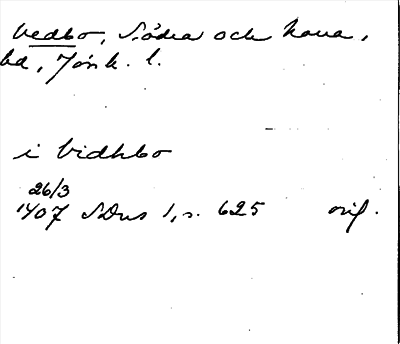 Vedbo, Södra och Norra,
hd, Jönk. l.
i Vidhbo
26/3
1407 SDns 1, s. 625 orig.